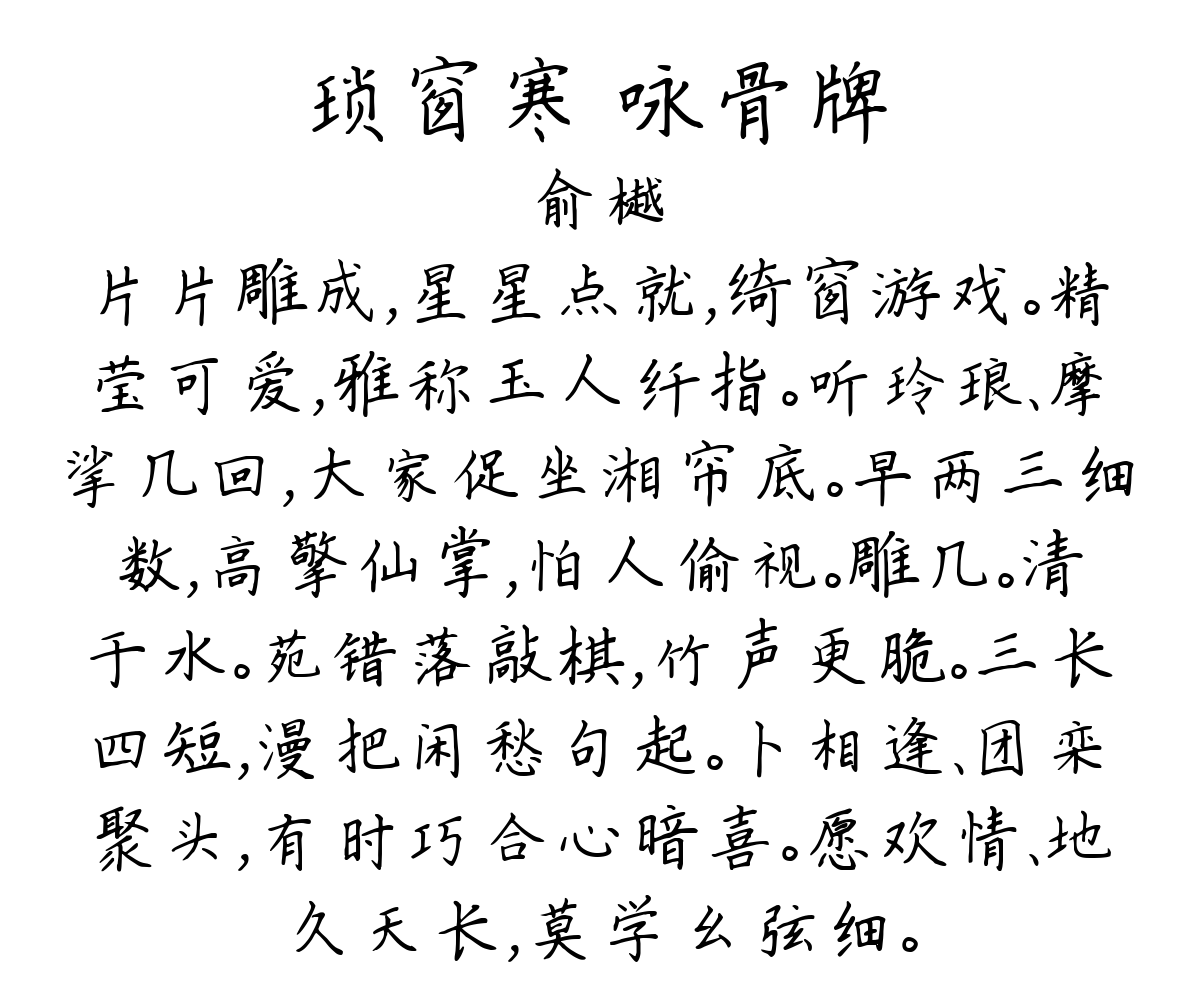 琐窗寒 咏骨牌
俞樾
片片雕成,星星点就,绮窗游戏。精
莹可爱,雅称玉人纤指。听玲琅、摩
挲几回,大家促坐湘帘底。早两三细
数,高擎仙掌,怕人偷视。雕几。清
于水。苑错落敲棋,竹声更脆。三长
四短,漫把闲愁句起。卜相逢、团栾
聚头,有时巧合心暗喜。愿欢情、地
久天长,莫学幺弦细。